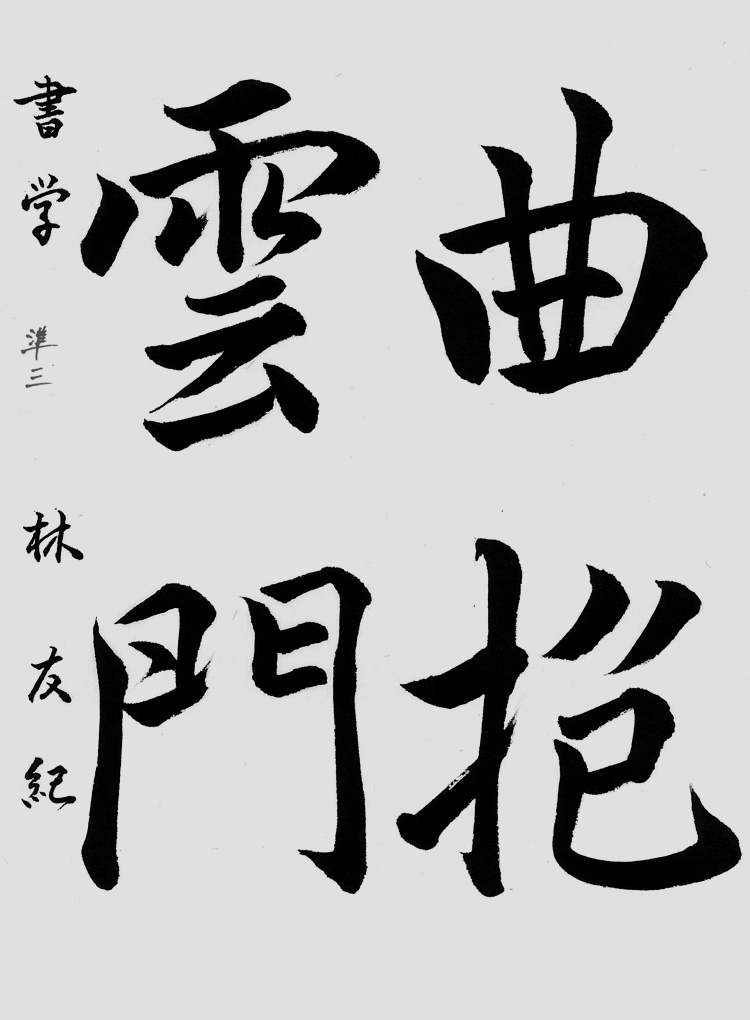 曲挹
雲門
書学 準三 林友紀